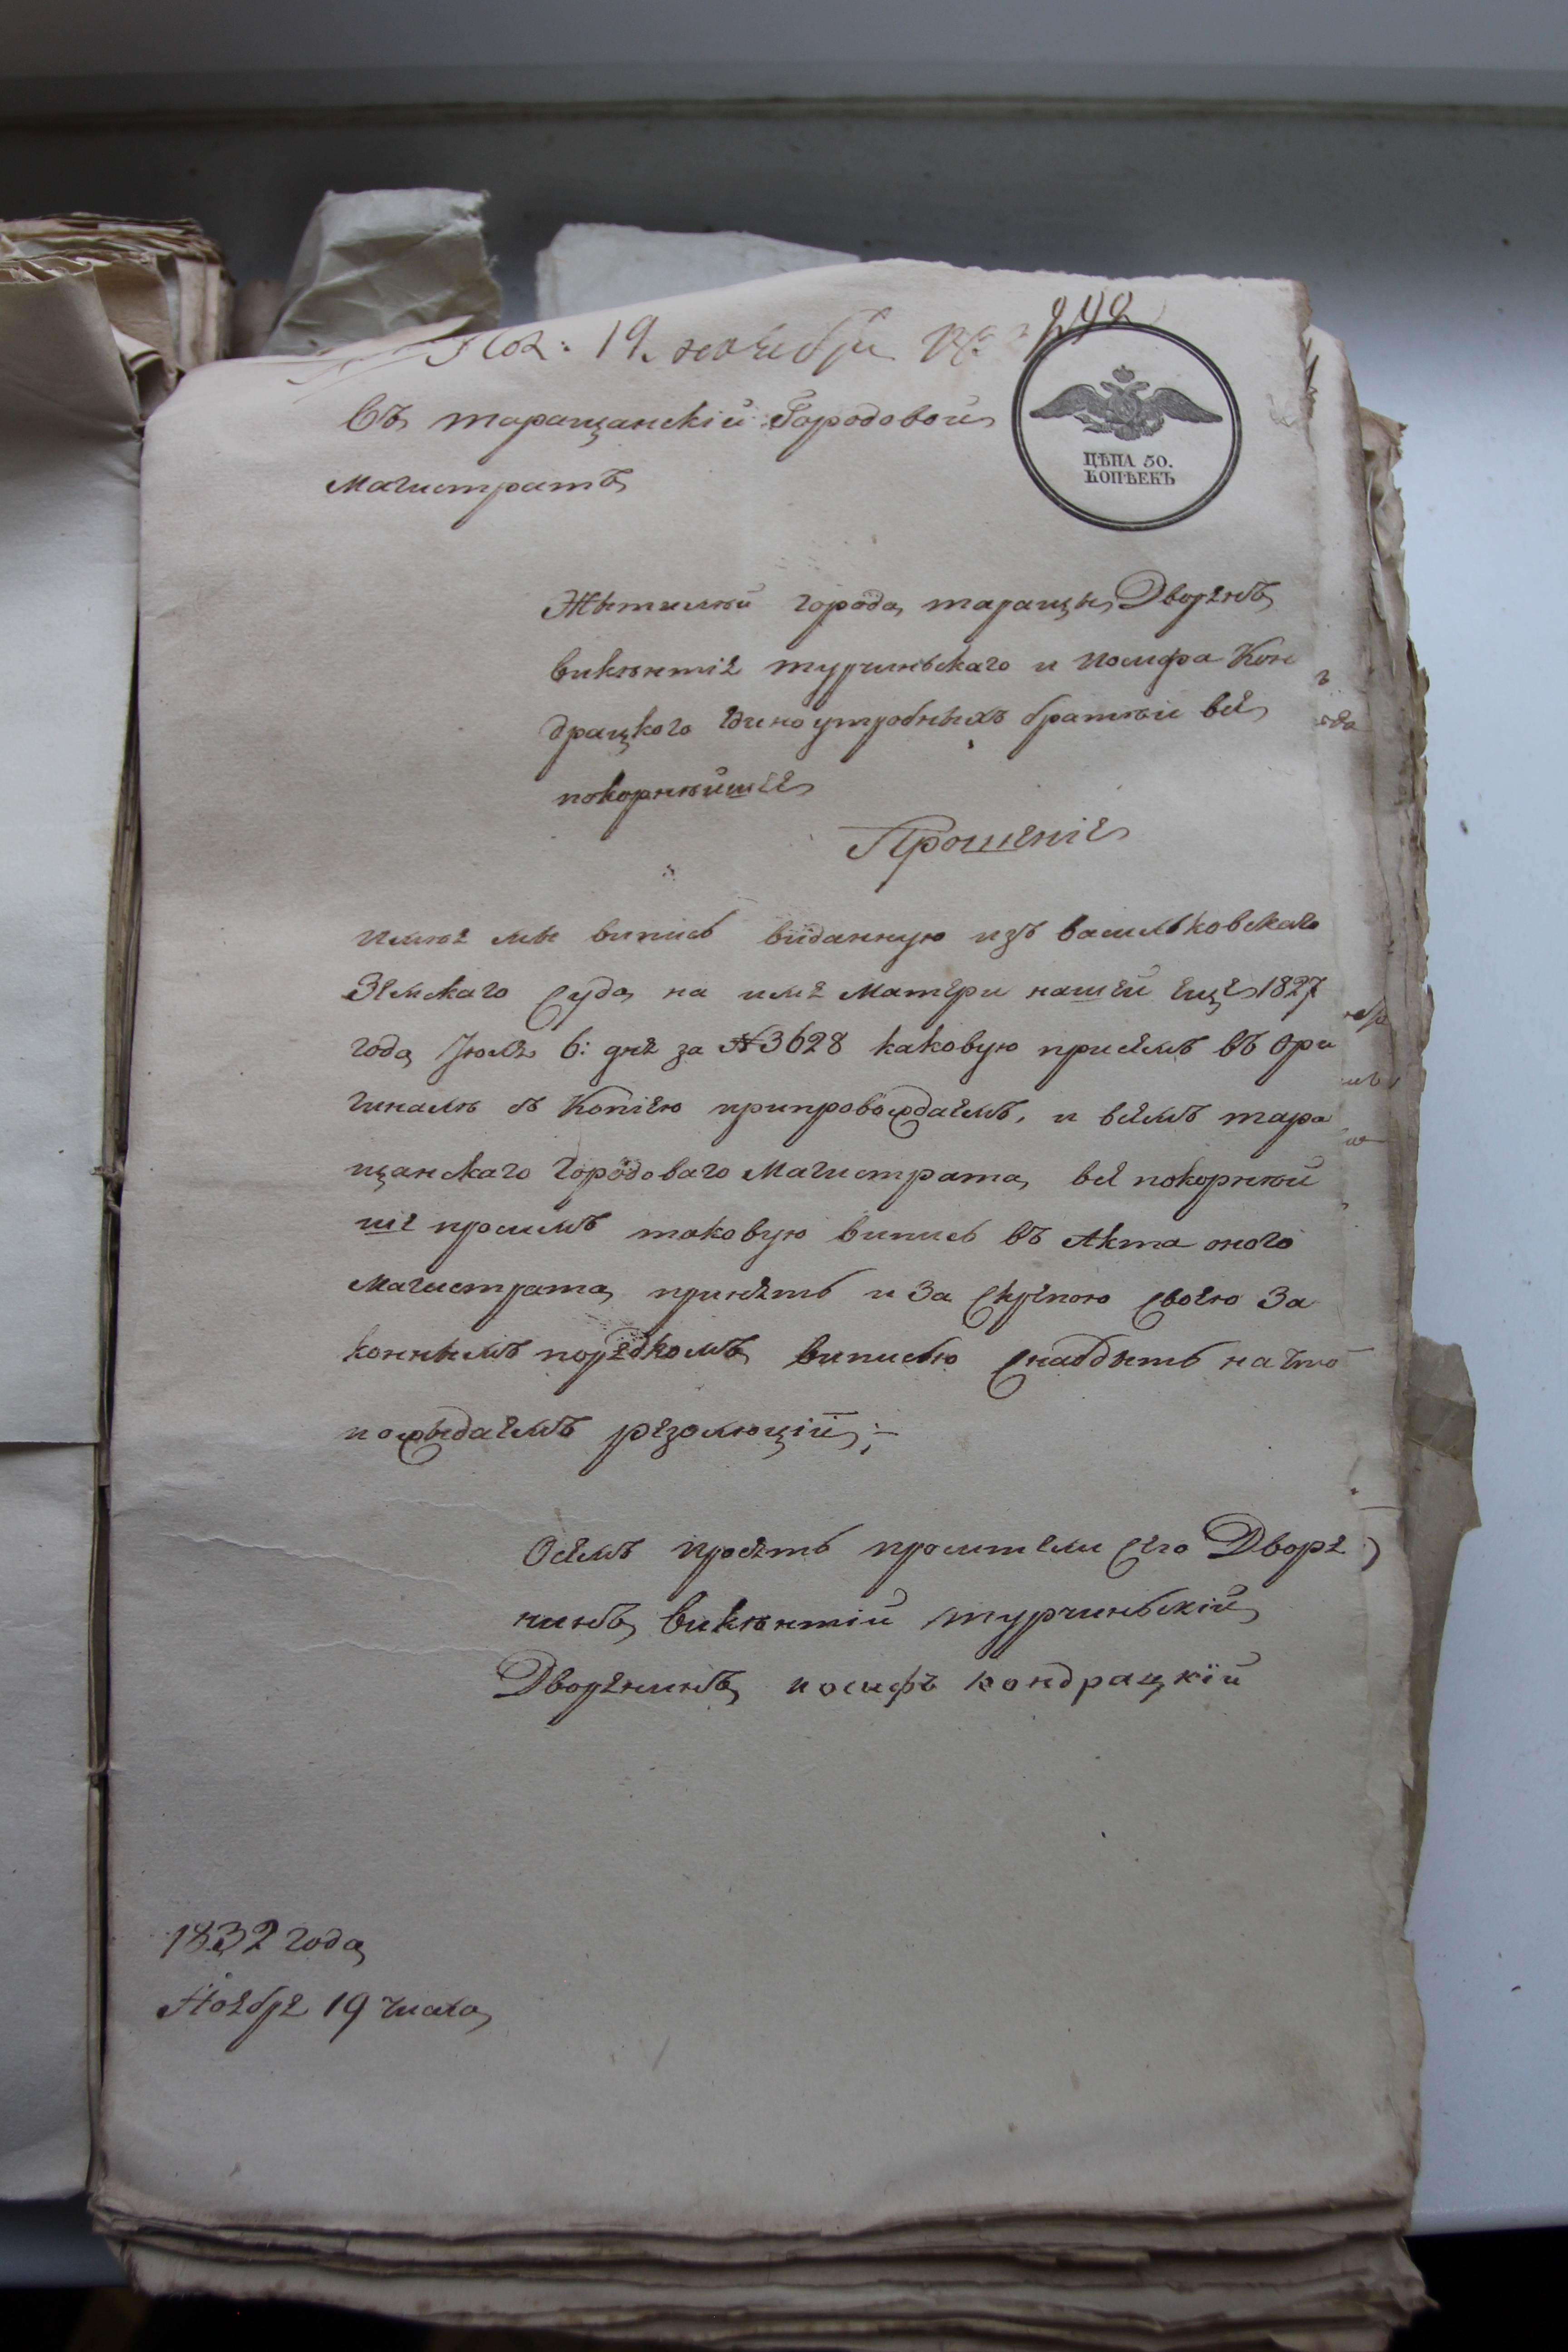 Пол: 19. ноября
242
Въ таращанскій Городовой
Магистратъ
ЦѢНА 50.
КОПѢЕКЪ
Жытилѣй города таращы Дворянъ
викѣнтія турчиньского и иосифа Кон
драцкого Единоутробныхъ братѣй всѣ
покорнѣйшее
Прошеніе
имѣя мы випись виданную изъ васильковскаго
Земскаго Суда на имя Матери нашей еще 1827
года Июля 6: дня за №3628 каковую присемъ въ Ори
гиналѣ съ Копіею припровождаемъ, и всемъ тара
щанскаго Городоваго Магистрата, всѣ покорнѣй
ше просимъ таковую випись въ Акта оного
Магистрата принять и За Скрепою Своею За
коннымъ порядкомъ виписью Снабдыть на что
пожыдаемъ резолюцій:
Осемъ просятъ просители Сего Дворя
нинъ викѣнтій турчиньскій
Дворянинъ иосифъ кондрацкій
1832 года
Ноября 19 числа